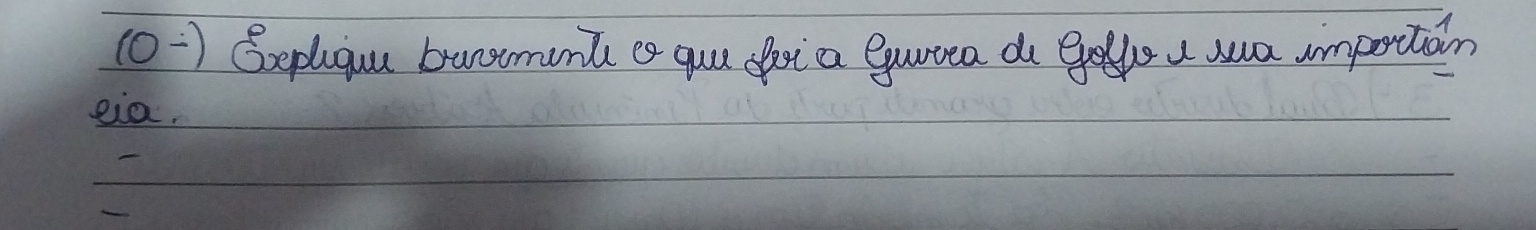 10-) Explique brevemente o que foi a Guerra do Golfo e sua importân
cia.
-
-